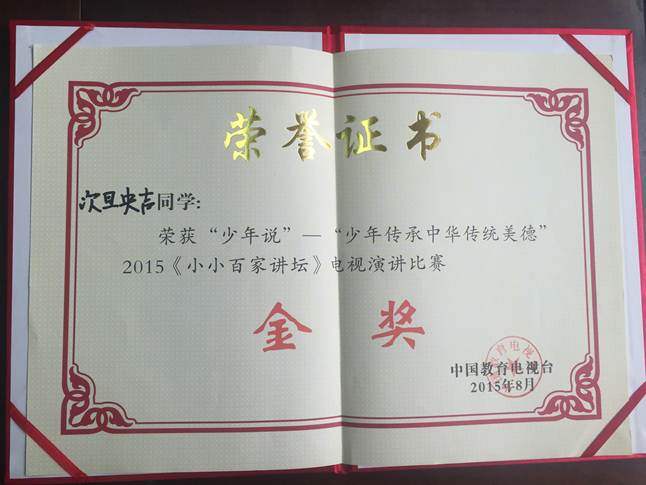 荣誉证书
次旦央吉同学:
荣获“少年说”—“少年传承中华传统美德”
2015《小小百家讲坛》电视演讲比赛
金奖
中国教育电视台
2015年8月